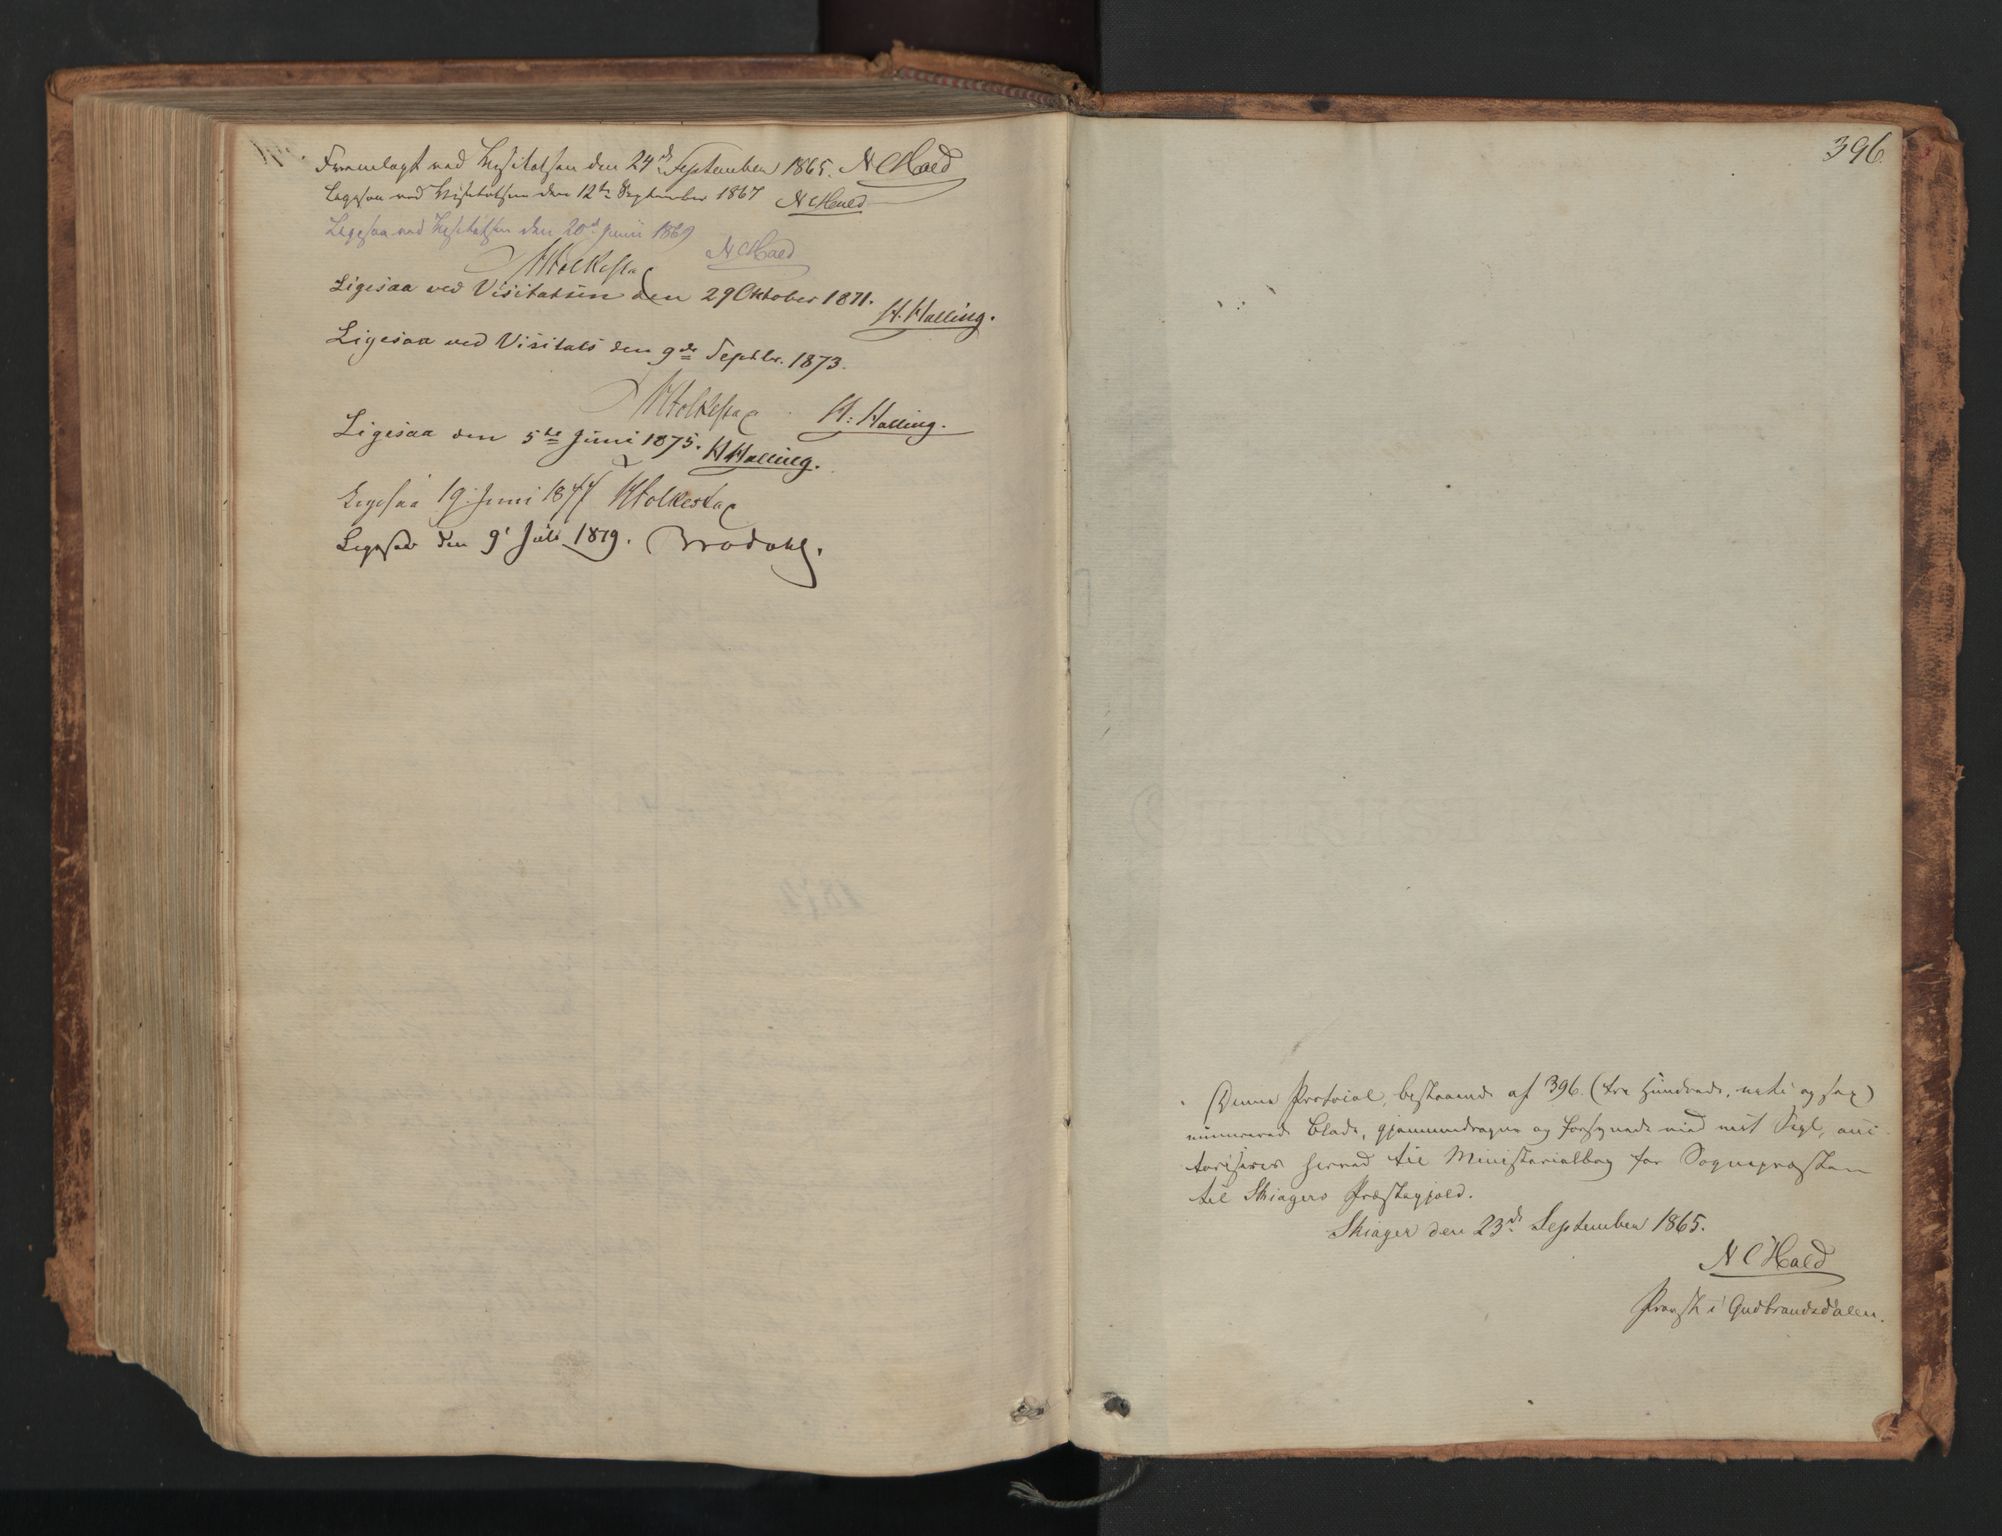 Fremlagt ved Visitatsen den 24de September 1865. N C Hald
Ligesaa ved Visitatsen den 12te September 1867 N C Hald
Ligesaa ved Visitatsen den 20de Juni 1869
N C Hald
Ligesaa ved Visitatsen den 29 Oktober 1871.
H. Halling.
Ligesaa ved Visitats den 9de Septbr. 1873.
H. Halling.
Ligesaa den 5te Juni 1875. H Halling.
Ligesaa 19. Juni 1877
Ligesaa den 9' Juli 1879. Brodahl.
396.
Denne Protocol, bestaaende af 396 (tre Hundrede, niti og sex)
numererede Blade, gjennemdragne og forsynede med mit Segl, aut
toriseres herved til Ministerialbog for Sognepræsten
til Skiagers Præstegjæld.
Skiager den 23de September 1865.
N C Hald
Provst i Gudbrandsdalen.